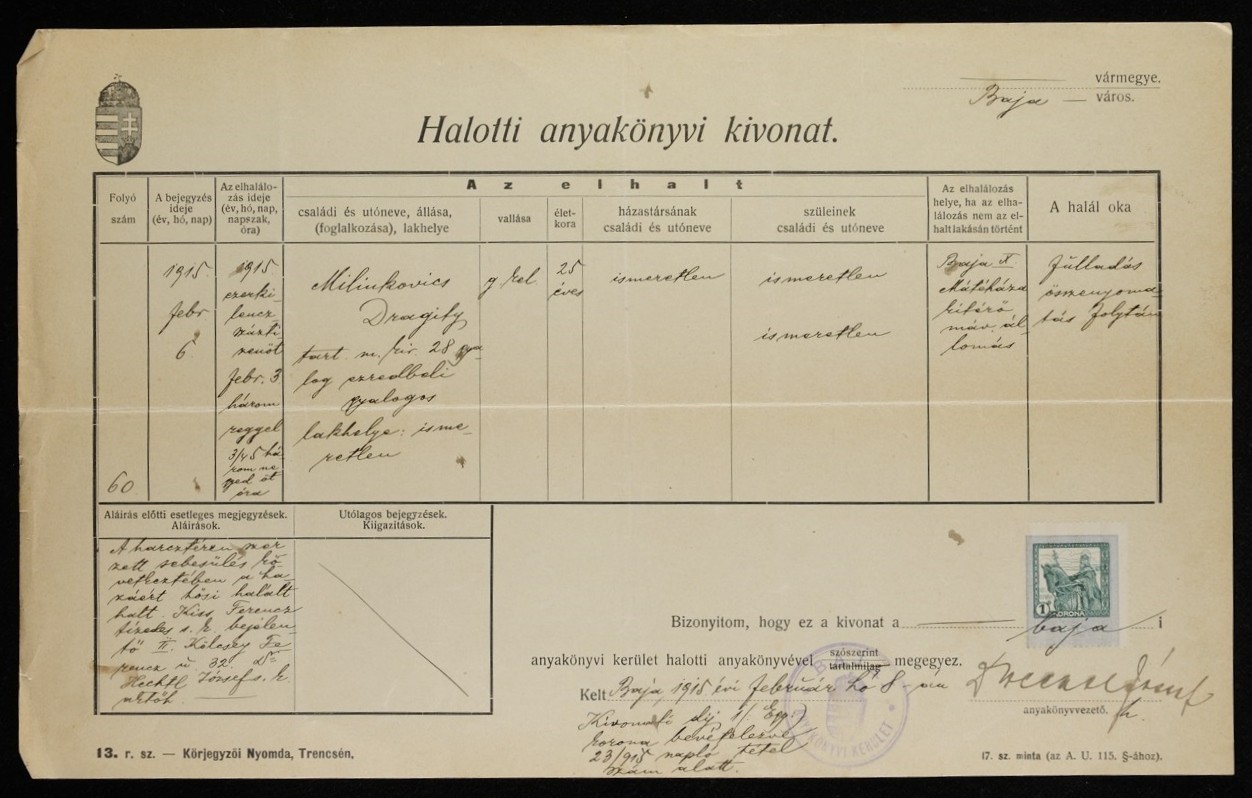 vármegye.
Baja — város.
Halotti anyakönyvi kivonat.
Folyó szám
A bejegyzés ideje (év, hó, nap)
Az elhalálozás ideje (év, hó, nap, napszak, óra)
Az elhalt
családi és utóneve, állása, (foglalkozása), lakhelye
vallása
életkora
házastársának családi és utóneve
szüleinek családi és utóneve
Az elhalálozás helye, ha az elhalálozás nem az elhalt lakásán történt
A halál oka
60
1915.
febr
6.
1915
ezerki-
lencz-
százti
zenöt
febr. 3
három
reggel
3/45 há
rom ne
gyed öt
óra
Milinkovics
Dragity
tart. m. kir. 28 gya
log ezredbeli
gyalogos
lakhelye: isme-
retlen
g kel.
25
éves
ismeretlen
ismeretlen
ismeretlen
Baja X.
Mátéháza
kitérő
máv. ál-
lomás
fulladás
összenyoma-
tás folytán
Aláírás előtti esetleges megjegyzések.
Aláírások.
A harcztéren szer
zett sebesülés kö
vetkeztében a ha
záért hősi halált
halt. Kiss Ferencz
tizedes s. k. bejelen-
tő II. Kölcsey Fe
rencz u. 32. Dr
Hechtl József s. k.
Utólagos bejegyzések.
Kiigazítások.
1 KORONA
Bizonyitom, hogy ez a kivonat a — baja i
anyakönyvi kerület halotti anyakönyvével szószerint tartalmilag megegyez.
Kelt Baja, 1915 évi február hó 8-án
anyakönyvezető. h.
Kivonati díj 1/ Egy/
korona bevételezve
23/915 napló tétel
szám alatt.
KÖNYVI KERÜLET
13. r. sz. — Körjegyzői Nyomda, Trencsén.
17. sz. minta (az A. U. 115. §-ához).